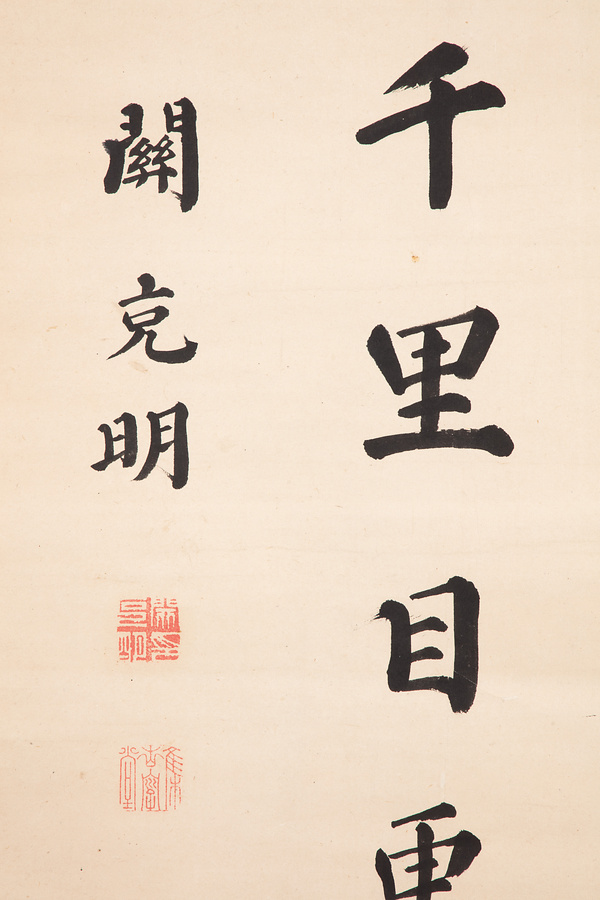 千里目更
關克明